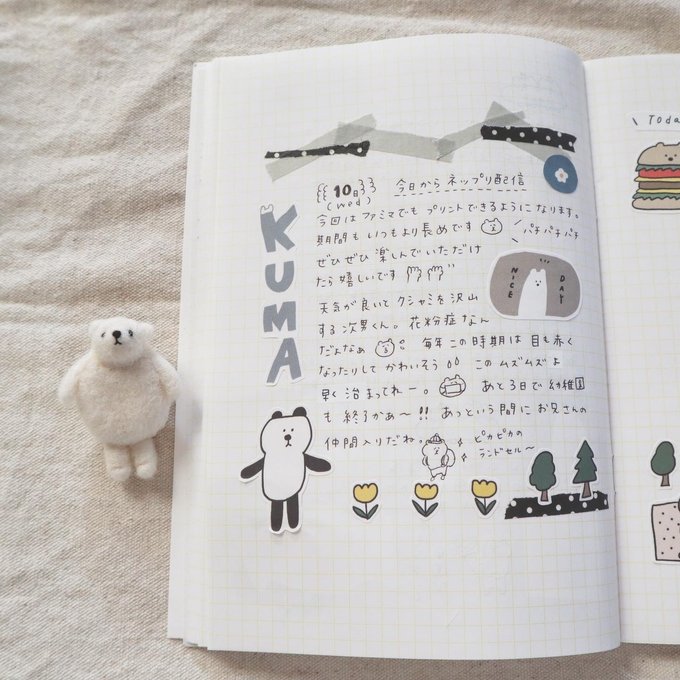 10日
(wed)
今日からネップリ配信
今回はファミマでもプリントできるようになります。
期間もいつもより長めです
パチパチパチ
ぜひぜひ楽しんでいただけ
たら嬉しいです
KUMA
NICE DAY
天気が良いてクシャミを沢山
する次男くん。花粉症なん
だよなぁ 毎年この時期は目も赤く
なったりしてかわいそう このムズムズよ
早く治まってれー。 あと3日で幼稚園
も終了かぁ〜!! あっという間にお兄さんの
仲間入りだね。
ピカピカの
ランドセル〜
\ Toda